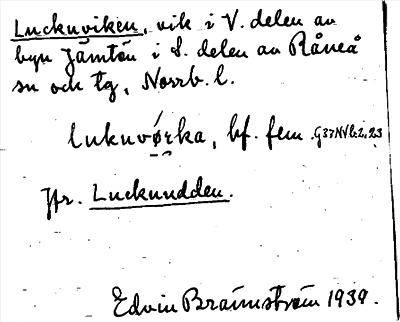 Luckuviken, vik i V. delen av
byn Jämtön i S. delen av Råneå
sn och tg, Norrb. l.
lukuvørka, bf. fem. G37NVb.2, 23
Jfr. Luckudden.
Edvin Brännström 1939.